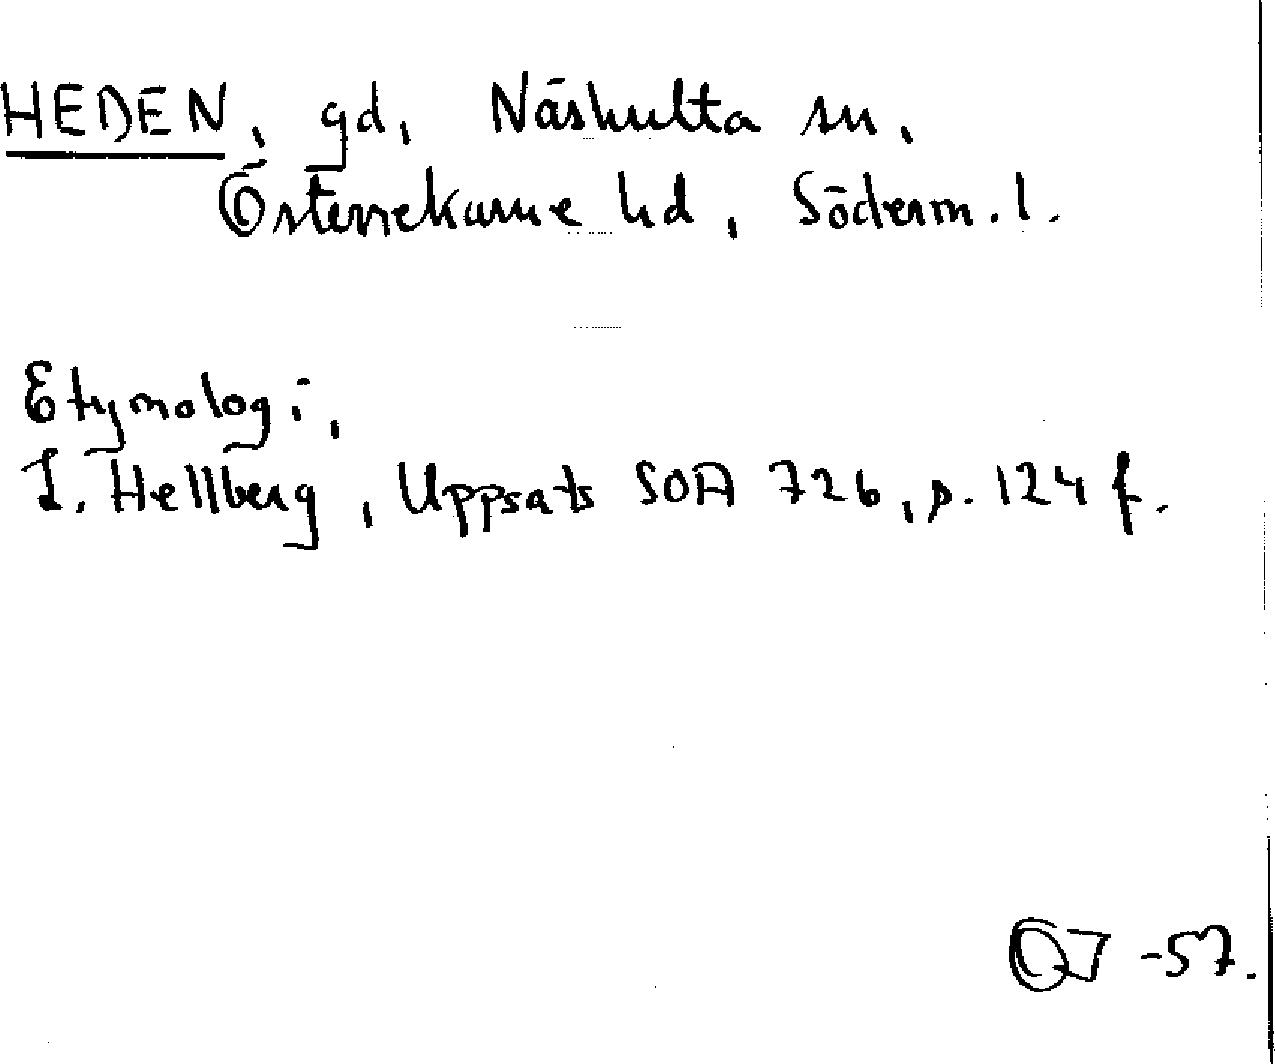 HEDEN, gd, Näshulta sn,
Österrekarne hd, Söderm. l.
Etymologi,
L. Hellberg, Uppsats SOA 726, s. 124 f.
-57.